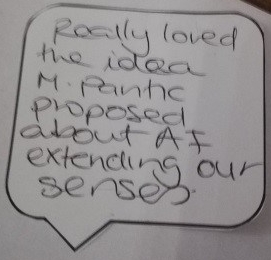 Really loved
the idea
M. Pantic
proposed
about AI
extending our
senses.